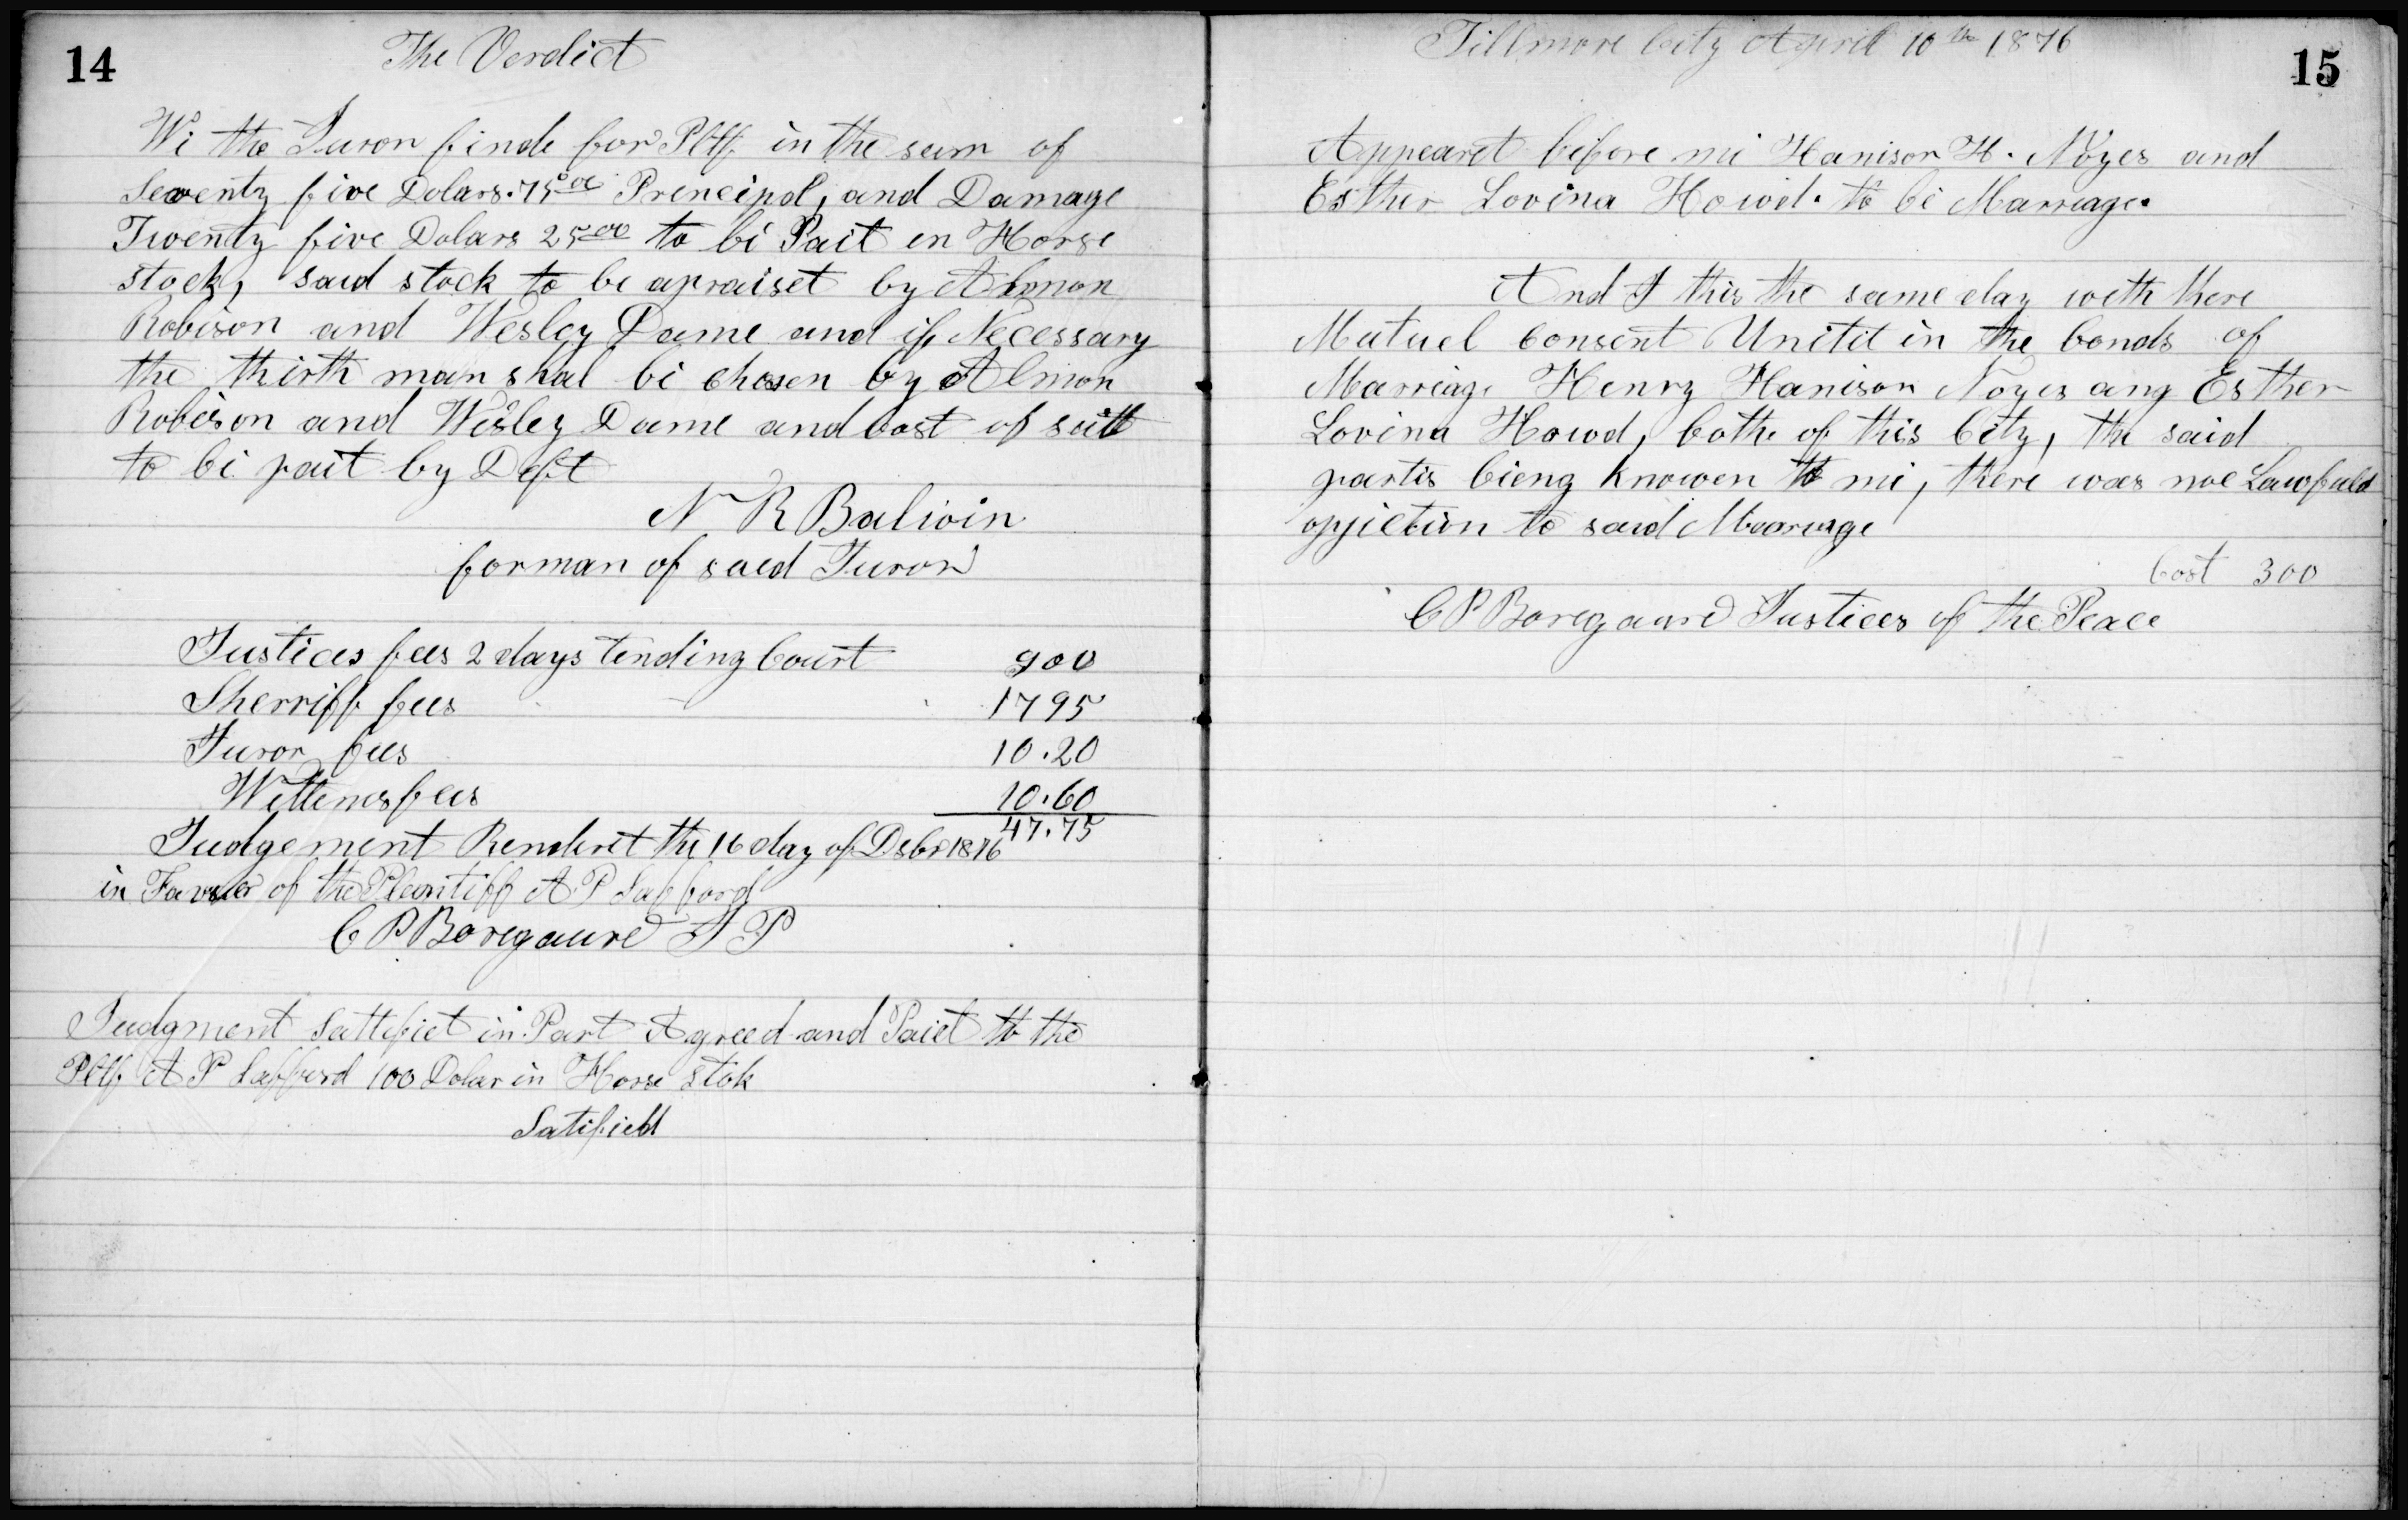 14
The Verdict
Wi the Juror finde for Pltff in the sum of
Seventy five Dolars. 75 00 Prencipal, and Damage
Twenty five Dolars 25 00 to bi Pait en Horse
stock, said stock to be apraiset by Almon
Robison and Wesley Dame and if Necessary
the thirth man shal bi chosen by Almon
Robison and Wesley Dame and Cost of suit
to bi pait by Deft
N R Balwin
forman of saed Juror
Justices fees 2 days tending Court 900
Sherriff fees 1795
Juror fees 10.20
Wittenes fees 10.60
47.75
Judgement Renderet the 16 day of Dsbr 1876
in Favour of the Pleantiff A P Safford
C P Boregaurd J P
Judgment Sattefiet in Part Agreed and Paiet to the
Pltff A P Safferd 100 Dolar in Horse Stok
Satifield
15
Fillmore City April 10th 1876
Appearet before mi Hanison H. Noyes and
Esther Lovina Howd. to bi Marreage.
And I this the same day with there
Mutuel Consent Unitit in the bonds of
Marriage Henry Hanison Noyes ang Esther
Lovina Howd, bothe of this City, the said
partis bieng knowen to mi, there was noe Lawfuld
opjiction to said Mearriage
Cost 300
C P Boregaurd Justices of the Peace